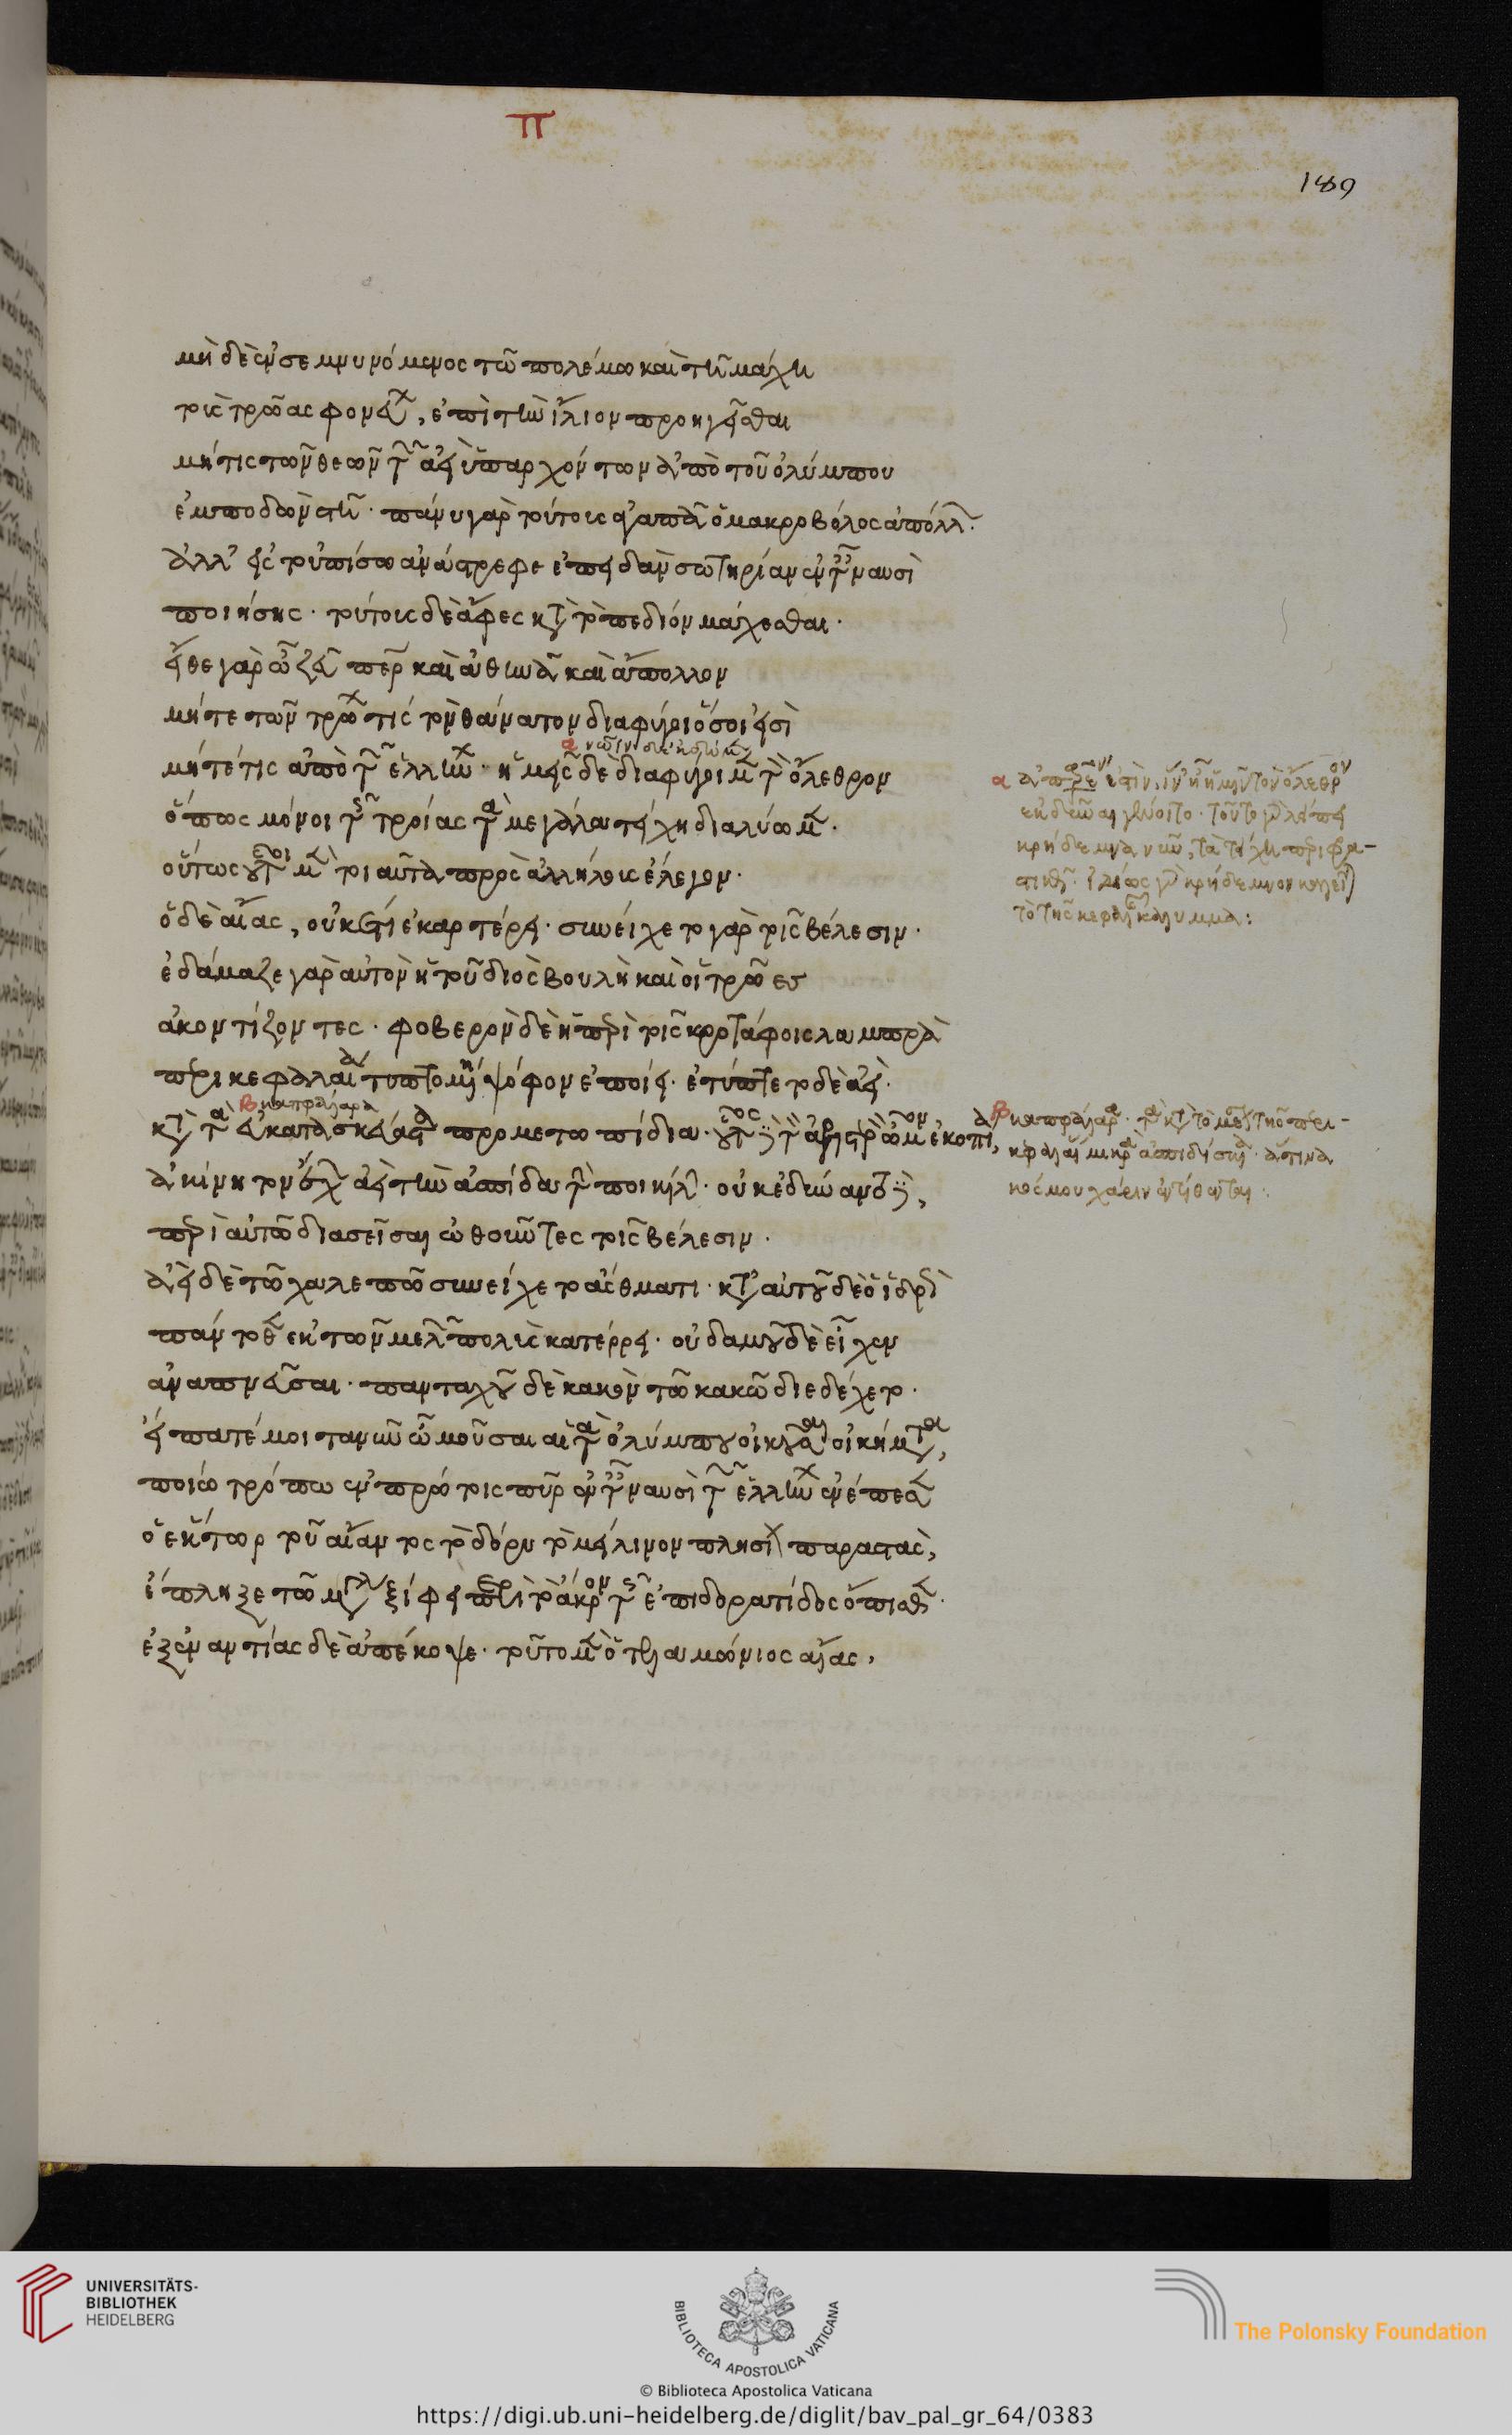 π
189
μὴ δὲ ἐνσεμνυνόμενος τῶ πολέμω καὶ τῆ μάχη
τοὺς τρῶας φονεύων, ἐπὶ τὴν ἴλιον προηγεῖσθαι
μήτις τῶν θεῶν τῶν ἀεὶ ὑπαρχόντων ἀπὸ τοῦ ὀλύμπου
ἐμποδὼν στῆ· πάνυ γὰρ τούτους ἀγαπᾶ ὁ μακροβόλος ἀπόλλων·
ἀλλ' εἰς τοὐπίσω ἀνάστρεφε ἐπειδὰν σωτηρίαν ἐν ταῖς ναυσὶ
ποιήσης· τούτους δὲ ἄφες κατὰ τὸ πεδίον μάχεσθαι·
εἴθε γὰρ ὦ ζεῦ πάτερ καὶ ἀθηνᾶ καὶ ἄπολλον
μήτε τῶν τρώων τις τὸν θάνατον διαφύγοι ὅσοι εἰσὶ
α νῶϊν
μήτέ τις ἀπὸ τῶν ἑλλήνων· ἡμεῖς δὲ διαφύγοιμεν τὸν ὄλεθρον
ὅπως μόνοι τῆς τροίας τὰ μεγάλα τείχη διαλύωμεν·
οὕτως οὗτοι μὲν τοιαῦτα πρὸς ἀλλήλους ἔλεγον·
ὁ δὲ αἴας, οὐκέτι ἐκαρτέρει· συνείχετο γὰρ τοῖς βέλεσιν·
ἐδάμαζε γὰρ αὐτὸν ἡ τοῦ διὸς βουλὴ καὶ οἱ τρῶες
ἀκοντίζοντες· φοβερὸν δὲ ἡ περὶ τοῖς κροτάφοις λαμπρὰ
περικεφαλαία τυπτομένη ψόφον ἐποίει· ἐτύπτετο δὲ ἀεὶ·
β καπφάλαρα
κατὰ τὰ εὐκατασκεύαστα προμετωπίδια· οὗτος δὲ τὸν ἀριστερὸν ὦμον ἐκοπία,
ἀκίνητον ἔχων ἀεὶ τὴν ἀσπίδα τὴν ποικίλην· οὐκ ἐδύναντο δὲ,
περὶ αὐτῶ διασεῖσαι ὠθοῦντες τοῖς βέλεσιν·
ἀεὶ δὲ τῶ χαλεπῶ συνείχετο ἄσθματι· κατ' αὐτοῦ δὲ ὁ ἱδρὼς
πάντοθεν ἐκ τῶν μελῶν πολὺς κατέρρει· οὐδαμοῦ δὲ εἶχεν
ἀναπνεῦσαι· πανταχοῦ δὲ κακὸν τῶ κακῶ διεδέχετο·
εἴπατέ μοι τανῦν ὦ μοῦσαι αἱ τὰ ὀλύμπου οἰκοῦσαι οἰκήματα,
ποίω τρόπω ἐν πρώτοις πῦρ ἐν ταῖς ναυσὶ τῶν ἑλλήνων ἐνέπεσεν
ὁ ἕκτωρ τοῦ αἴαντος τὸ δόρυ τὸ μείλινον πλησίον παραστὰς,
ἔπληξε τῶ μεγάλω ξίφει περὶ τὸ ἄκρον τῆς ἐπιδορατίδος ὄπισθεν·
ἐξεναντίας δὲ ἀπέκοψε· τοῦτο μὲν ὁ τελαμώνιος αἴας,
α ἀπαρέμφατόν ἐστιν, ἵν' ἦ ἡμῖν τὸν ὄλεθρον
ἐκδῦναι γένοιτο· τοῦτο γὰρ λείπει
κρήδεμνα νῦν, τὰ τείχη περιφρα-
στικῶς· κυρίως γὰρ κρήδεμνον λέγεται
τὸ τῆς κεφαλῆς κάλυμμα:
β καπφάλαρα· τὰ κατὰ τὸ μέσον τῆς περι-
κεφαλαίας μικρὰ ἀσπιδίσκια· ἅτινα
κόσμου χάριν ἐντίθενται:
UNIVERSITÄTS-
BIBLIOTHEK
HEIDELBERG
BIBLIOTECA APOSTOLICA VATICANA
The Polonsky Foundation
© Biblioteca Apostolica Vaticana
https://digi.ub.uni-heidelberg.de/diglit/bav_pal_gr_64/0383